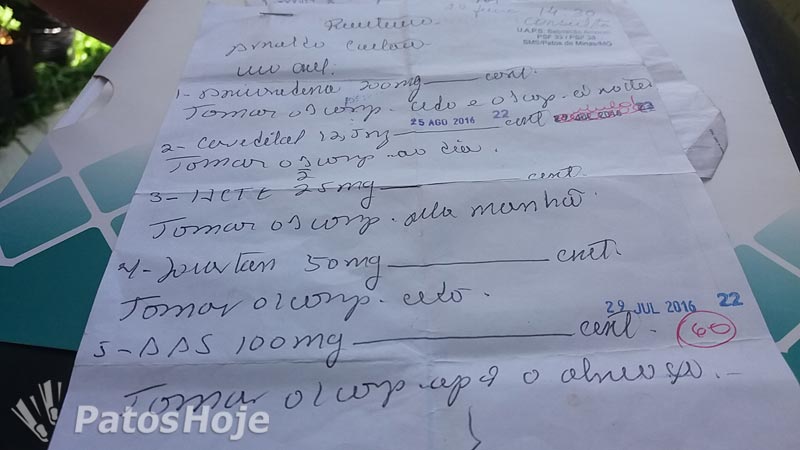 14:20
consulta
U.A.P.S. Sebastião Amorim
SMS/Patos de Minas/MG
Arnaldo
uso oral.
1- 200mg cont.
Tomar 01 comp. cedo e 01 comp. à noite
25 AGO 2016 22
2- Carvedilol 12,5mg cont
Tomar 01 comp ao dia.
2
3- HCTZ 25mg cont.
Tomar 01 comp. pela manhã.
4- Losartan 50mg cont.
Tomar 01 comp. cedo.
29 JUL 2016 22
5- AAS 100mg cont. 60
Tomar 01 comp. após o almoço.
PatosHoje